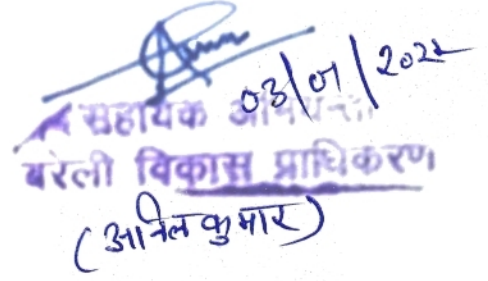 03/01/2022
सहायक अभियन्ता
बरेली विकास प्राधिकरण
(अनिल कुमार)